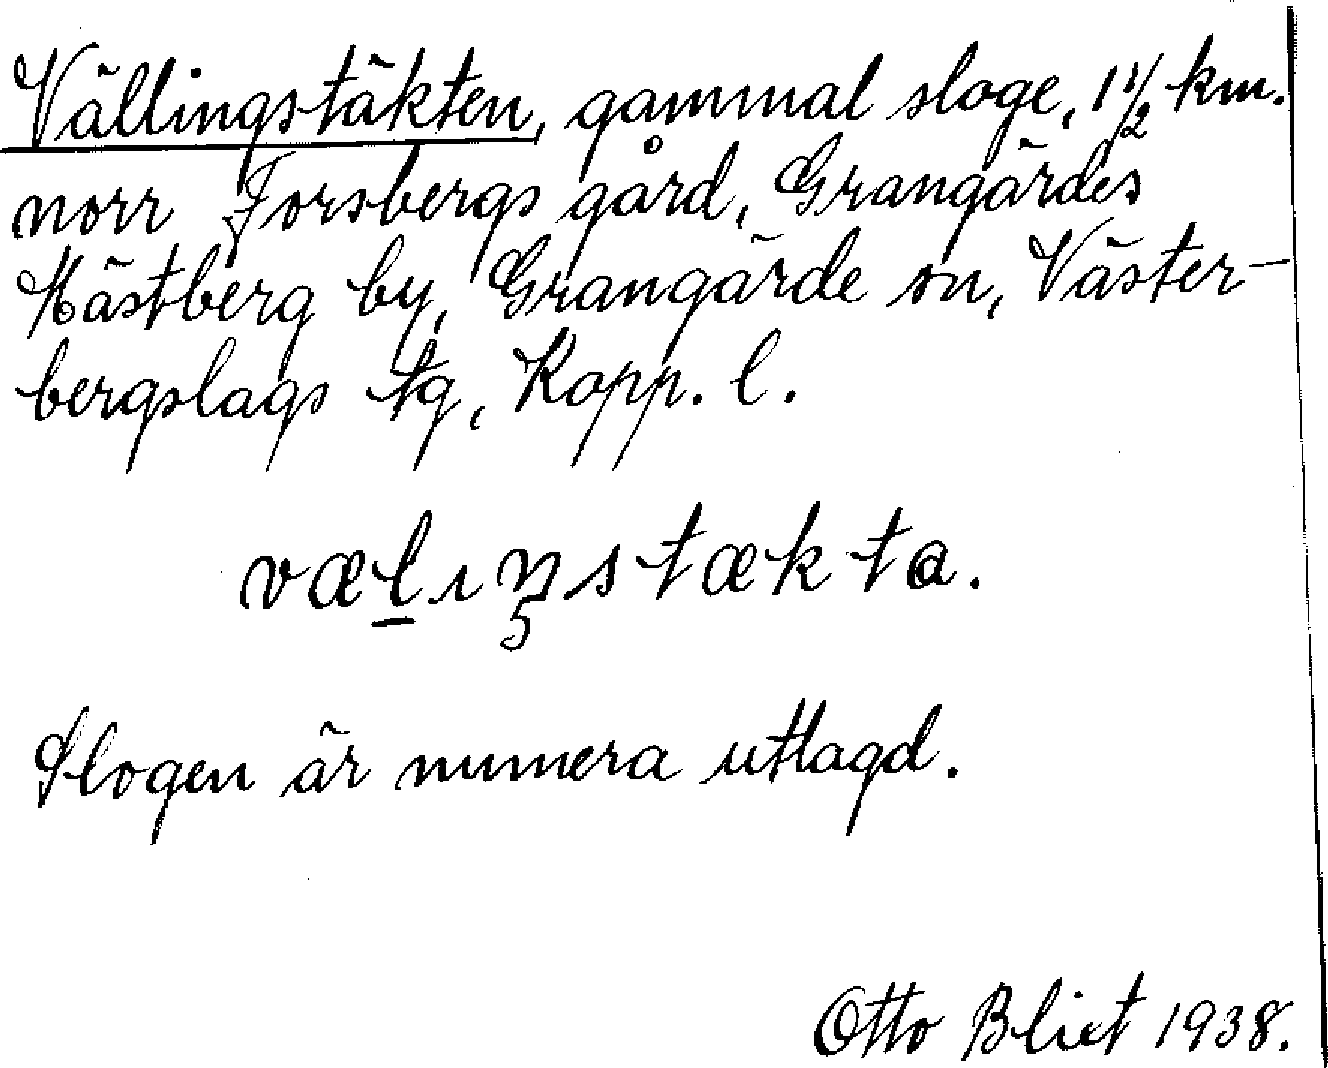 Vällingstäkten, gammal sloge, 1 1/2 km.
norr Forsbergs gård, Grangärdes
Hästberg by, Grangärde sn, Väster-
bergslags tg, Kopp. l.
væl̲ıŋstækta.
Slogen är numera utlagd.
Otto Blixt 1938.